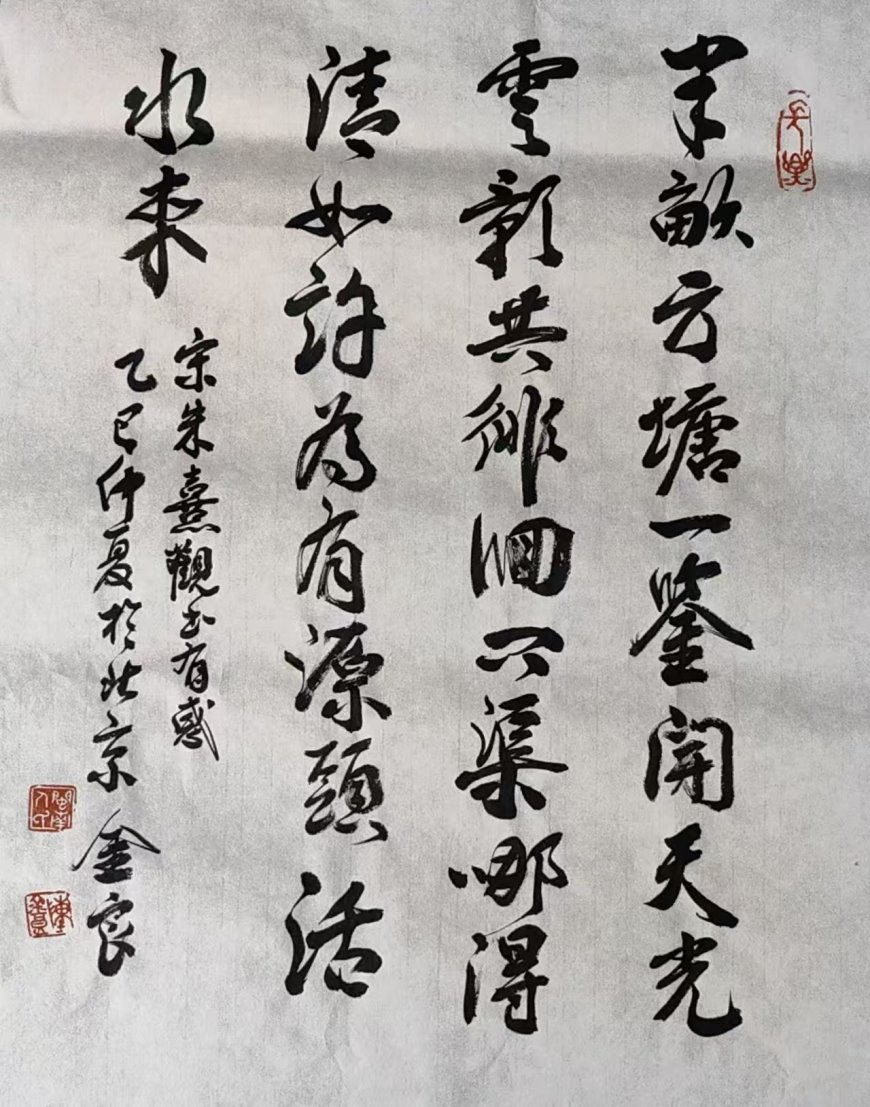 半畝方塘一鉴開天光
雲影共徘徊問渠哪得
清如許為有源頭活
水来
宋朱熹觀書有感
乙巳仲夏於北京 金良
閩南人氏